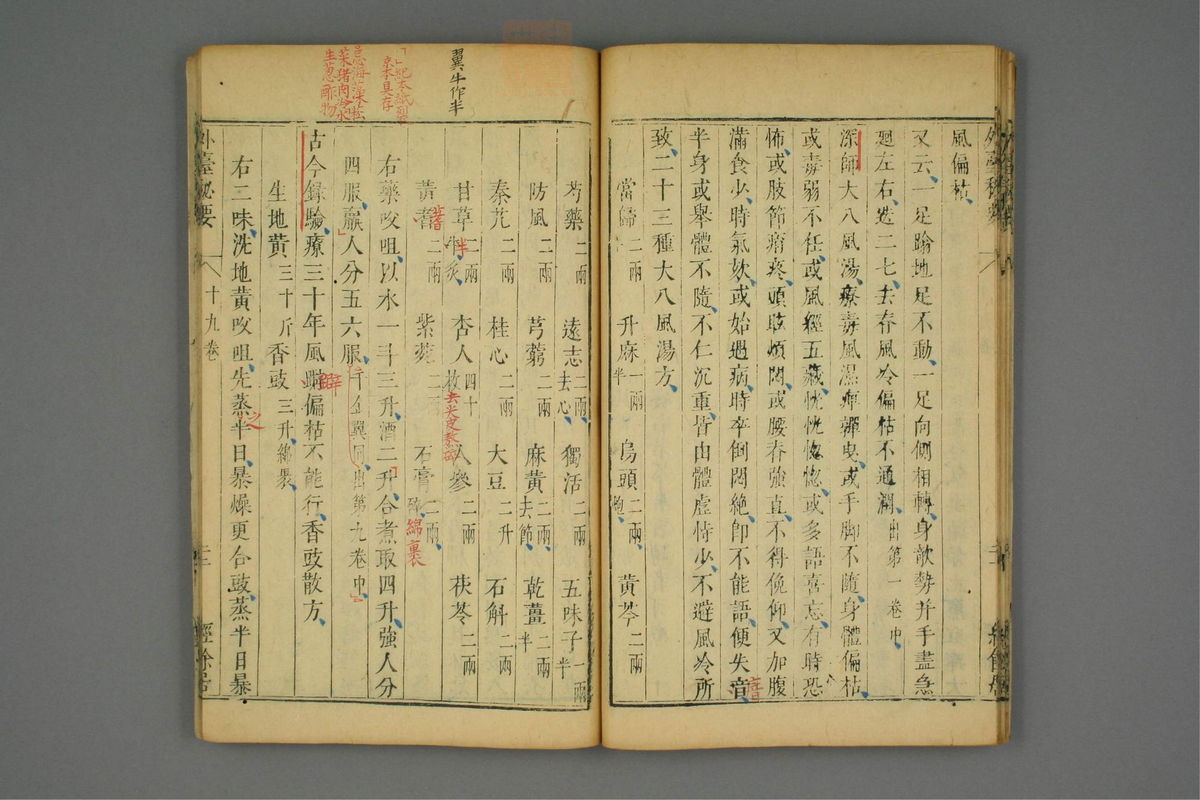 風偏枯
又云一足踰地足不動一足向側相轉身欹勢并手盡急
廻左右迭二七去春風冷偏枯不通潤出第一卷中
深師大八風湯療毒風濕痺嚲曳或手脚不隨身體偏枯
或毒弱不任或風經五藏恍恍惚惚或多語喜忘有時恐
怖或肢節痟疼頭眩煩悶或腰脊強直不得俛仰又加腹
滿食少時氣欬或始遇病時卒倒悶絶即不能語便失音
瘖
半身或舉體不隨不仁沉重皆由體虛恃少不避風冷所
致二十三種大八風湯方
當歸二兩 升麻一兩半 烏頭二兩炮 黃芩二兩
芍藥二兩 遠志二兩去心 獨活二兩 五味子一兩半
防風二兩 芎藭二兩 麻黃二兩去節 乾薑二兩半
秦艽二兩 桂心二兩 大豆二升 石斛二兩
甘草二兩炙 杏人四十枚 人參二兩 茯苓二兩
半
去尖皮
黃耆二兩 紫菀二兩 石膏二兩碎
綿裹
右藥㕮咀以水一斗三升酒二升合煮取四升強人分
四服羸人分五六服千金翼同出第九卷中
古今錄驗療三十年風躄偏枯不能行香豉散方
生地黃三十斤 香豉三升綿裹
右二味洗地黃㕮咀先蒸半日暴燥更合豉蒸半日暴
之
外臺秘要
十九卷
經餘居
翼牛作半
忌海藻菘
菜猪肉冷水
生葱酢物